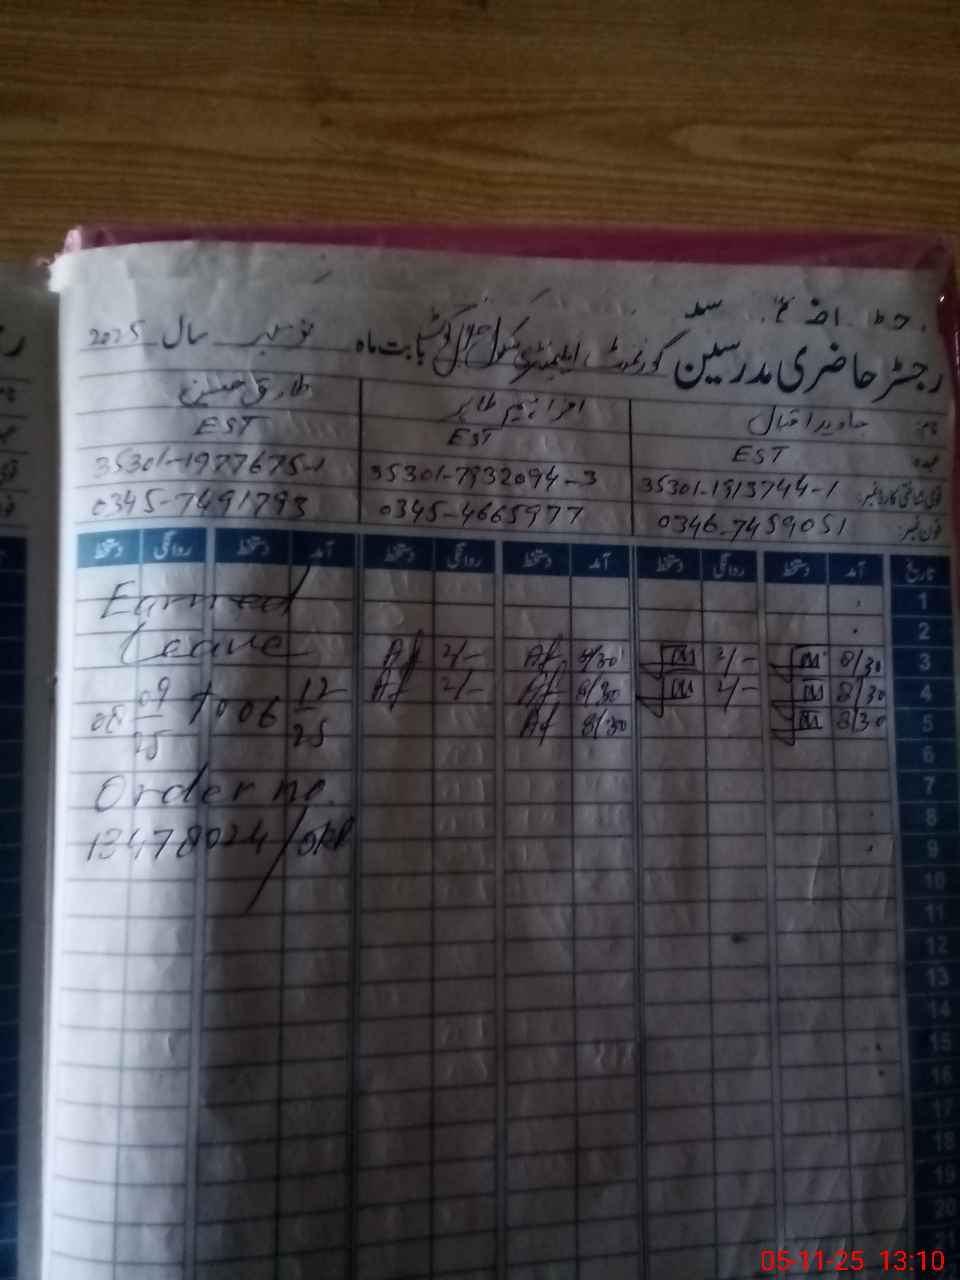 رجسٹر حاضری مدرسین گورنمنٹ ایلیمنٹری سکول بابت ماہ نومبر سال 2025
نام: جاوید اقبال طاہر طارق حسین
عہدہ EST EST EST
قومی شناختی کارڈ نمبر: 35301-1913744-1 35301-7932094-3 35301-1977675-1
فون نمبر: 0346-7459051 0345-4665977 0345-7491793
تاریخ آمد دستخط روانگی دستخط آمد دستخط روانگی دستخط آمد دستخط روانگی دستخط
1 Earned
2 Leave
3 8/30 2/- 8/30 Af 2/- Af
4 8/30 2/- 8/30 Af 2/- Af 08 09/25 to 06 12/25
5 8/30 8/30 Af
6
7 Order no.
8
9 13478024/
10
11
12
13
14
15
16
17
18
19
20
05-11-25 13:10